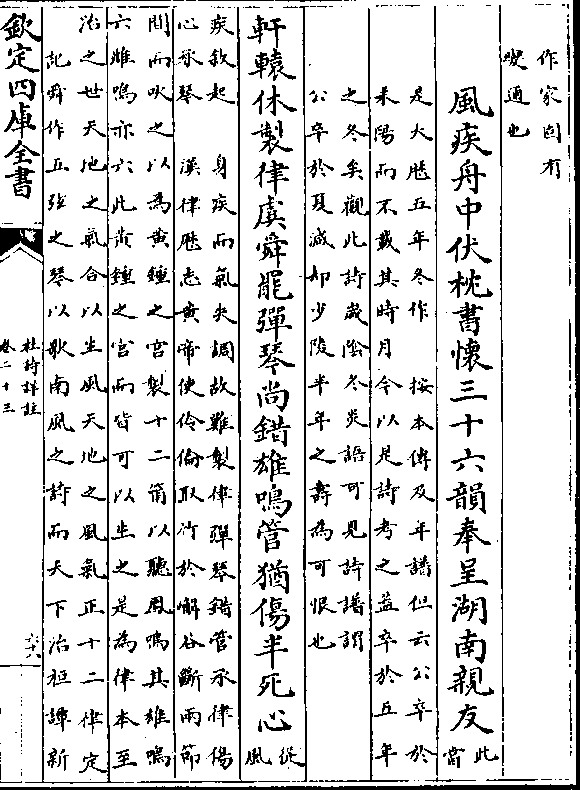 作家自有
變通也
風疾舟中伏枕書懷三十六韻奉呈湖南親友
此
當
是大厯五年冬作 按本傳及年譜但云公卒於
耒陽而不載其時月今以是詩考之蓋卒於五年
之冬矣觀此詩嵗隂冬炎語可見詩譜謂
公卒於夏減却少陵半年之壽為可恨也
軒轅休製律虞舜罷彈琴尚錯雄鳴管猶傷半死心
從
風
疾敘起 身疾而氣失調故難製律彈琴錯管承律傷
心承琴 漢律厯志黄帝使伶倫取竹於嶰谷斷兩節
間而吹之以為黄鍾之宫製十二筩以聽鳳鳴其雄鳴
六雌鳴亦六比黄鍾之宫而皆可以生之是為律本至
治之世天地之氣合以生風天地之風氣正十二律定
記舜作五弦之琴以歌南風之詩而天下治桓譚新
欽定四庫全書
杜詩詳註
卷二十三
六十八